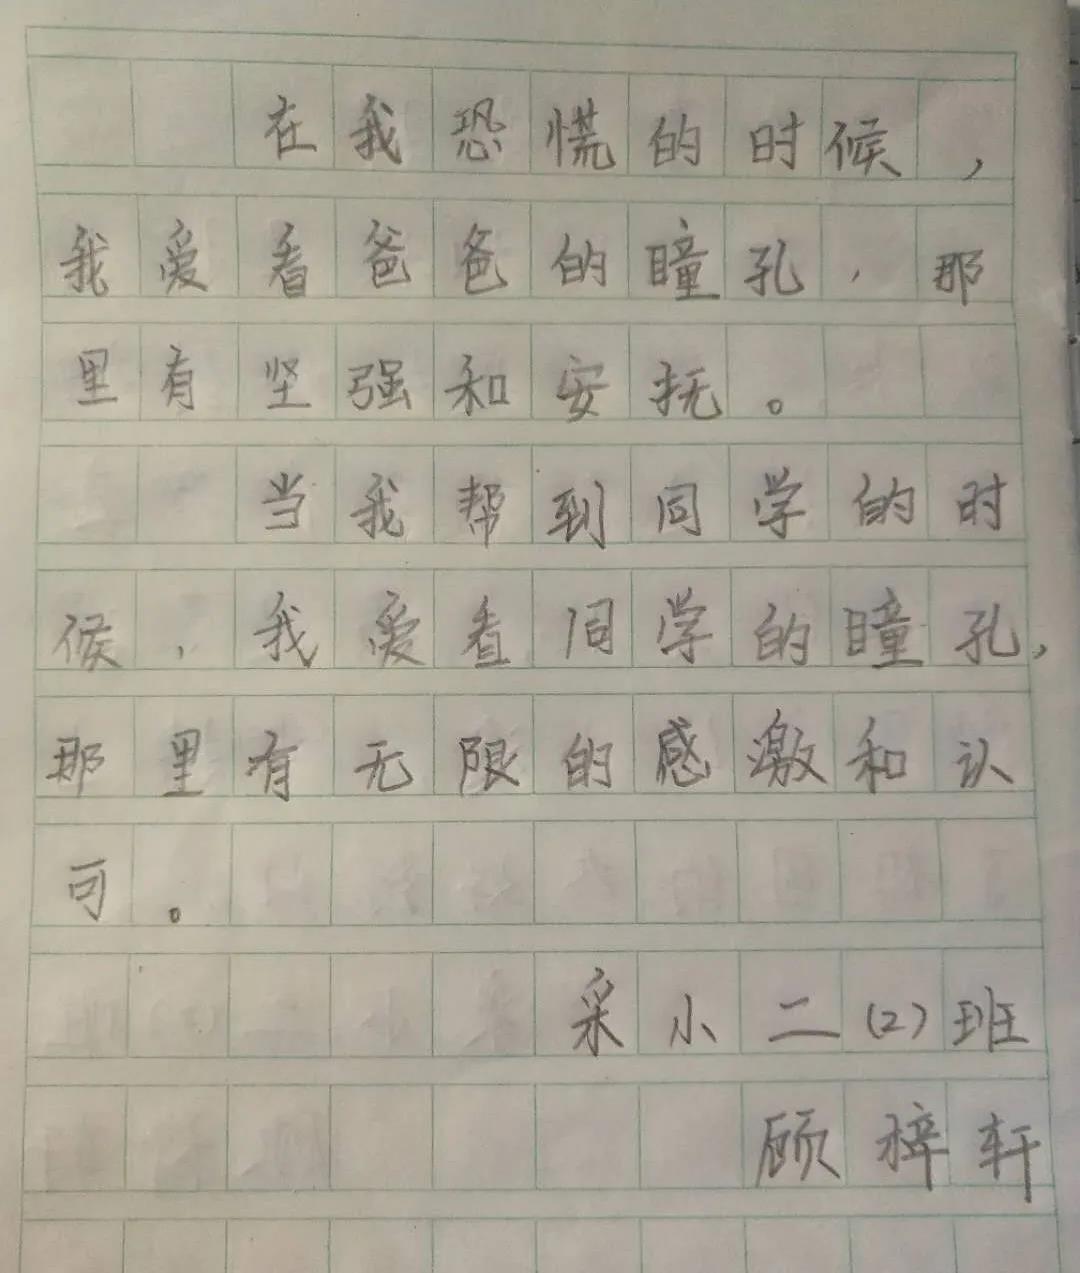 在我恐慌的时候，
我爱看爸爸的瞳孔，那
里有坚强和安抚。
当我帮到同学的时
候，我爱看同学的瞳孔，
那里有无限的感激和认
可。
采小二(2)班
顾梓轩